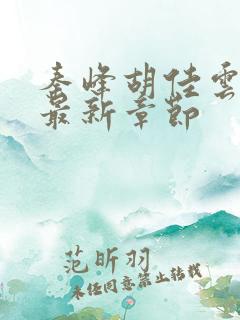 秦峰胡佳雲
最新章節
范昕羽
未經同意禁止轉載